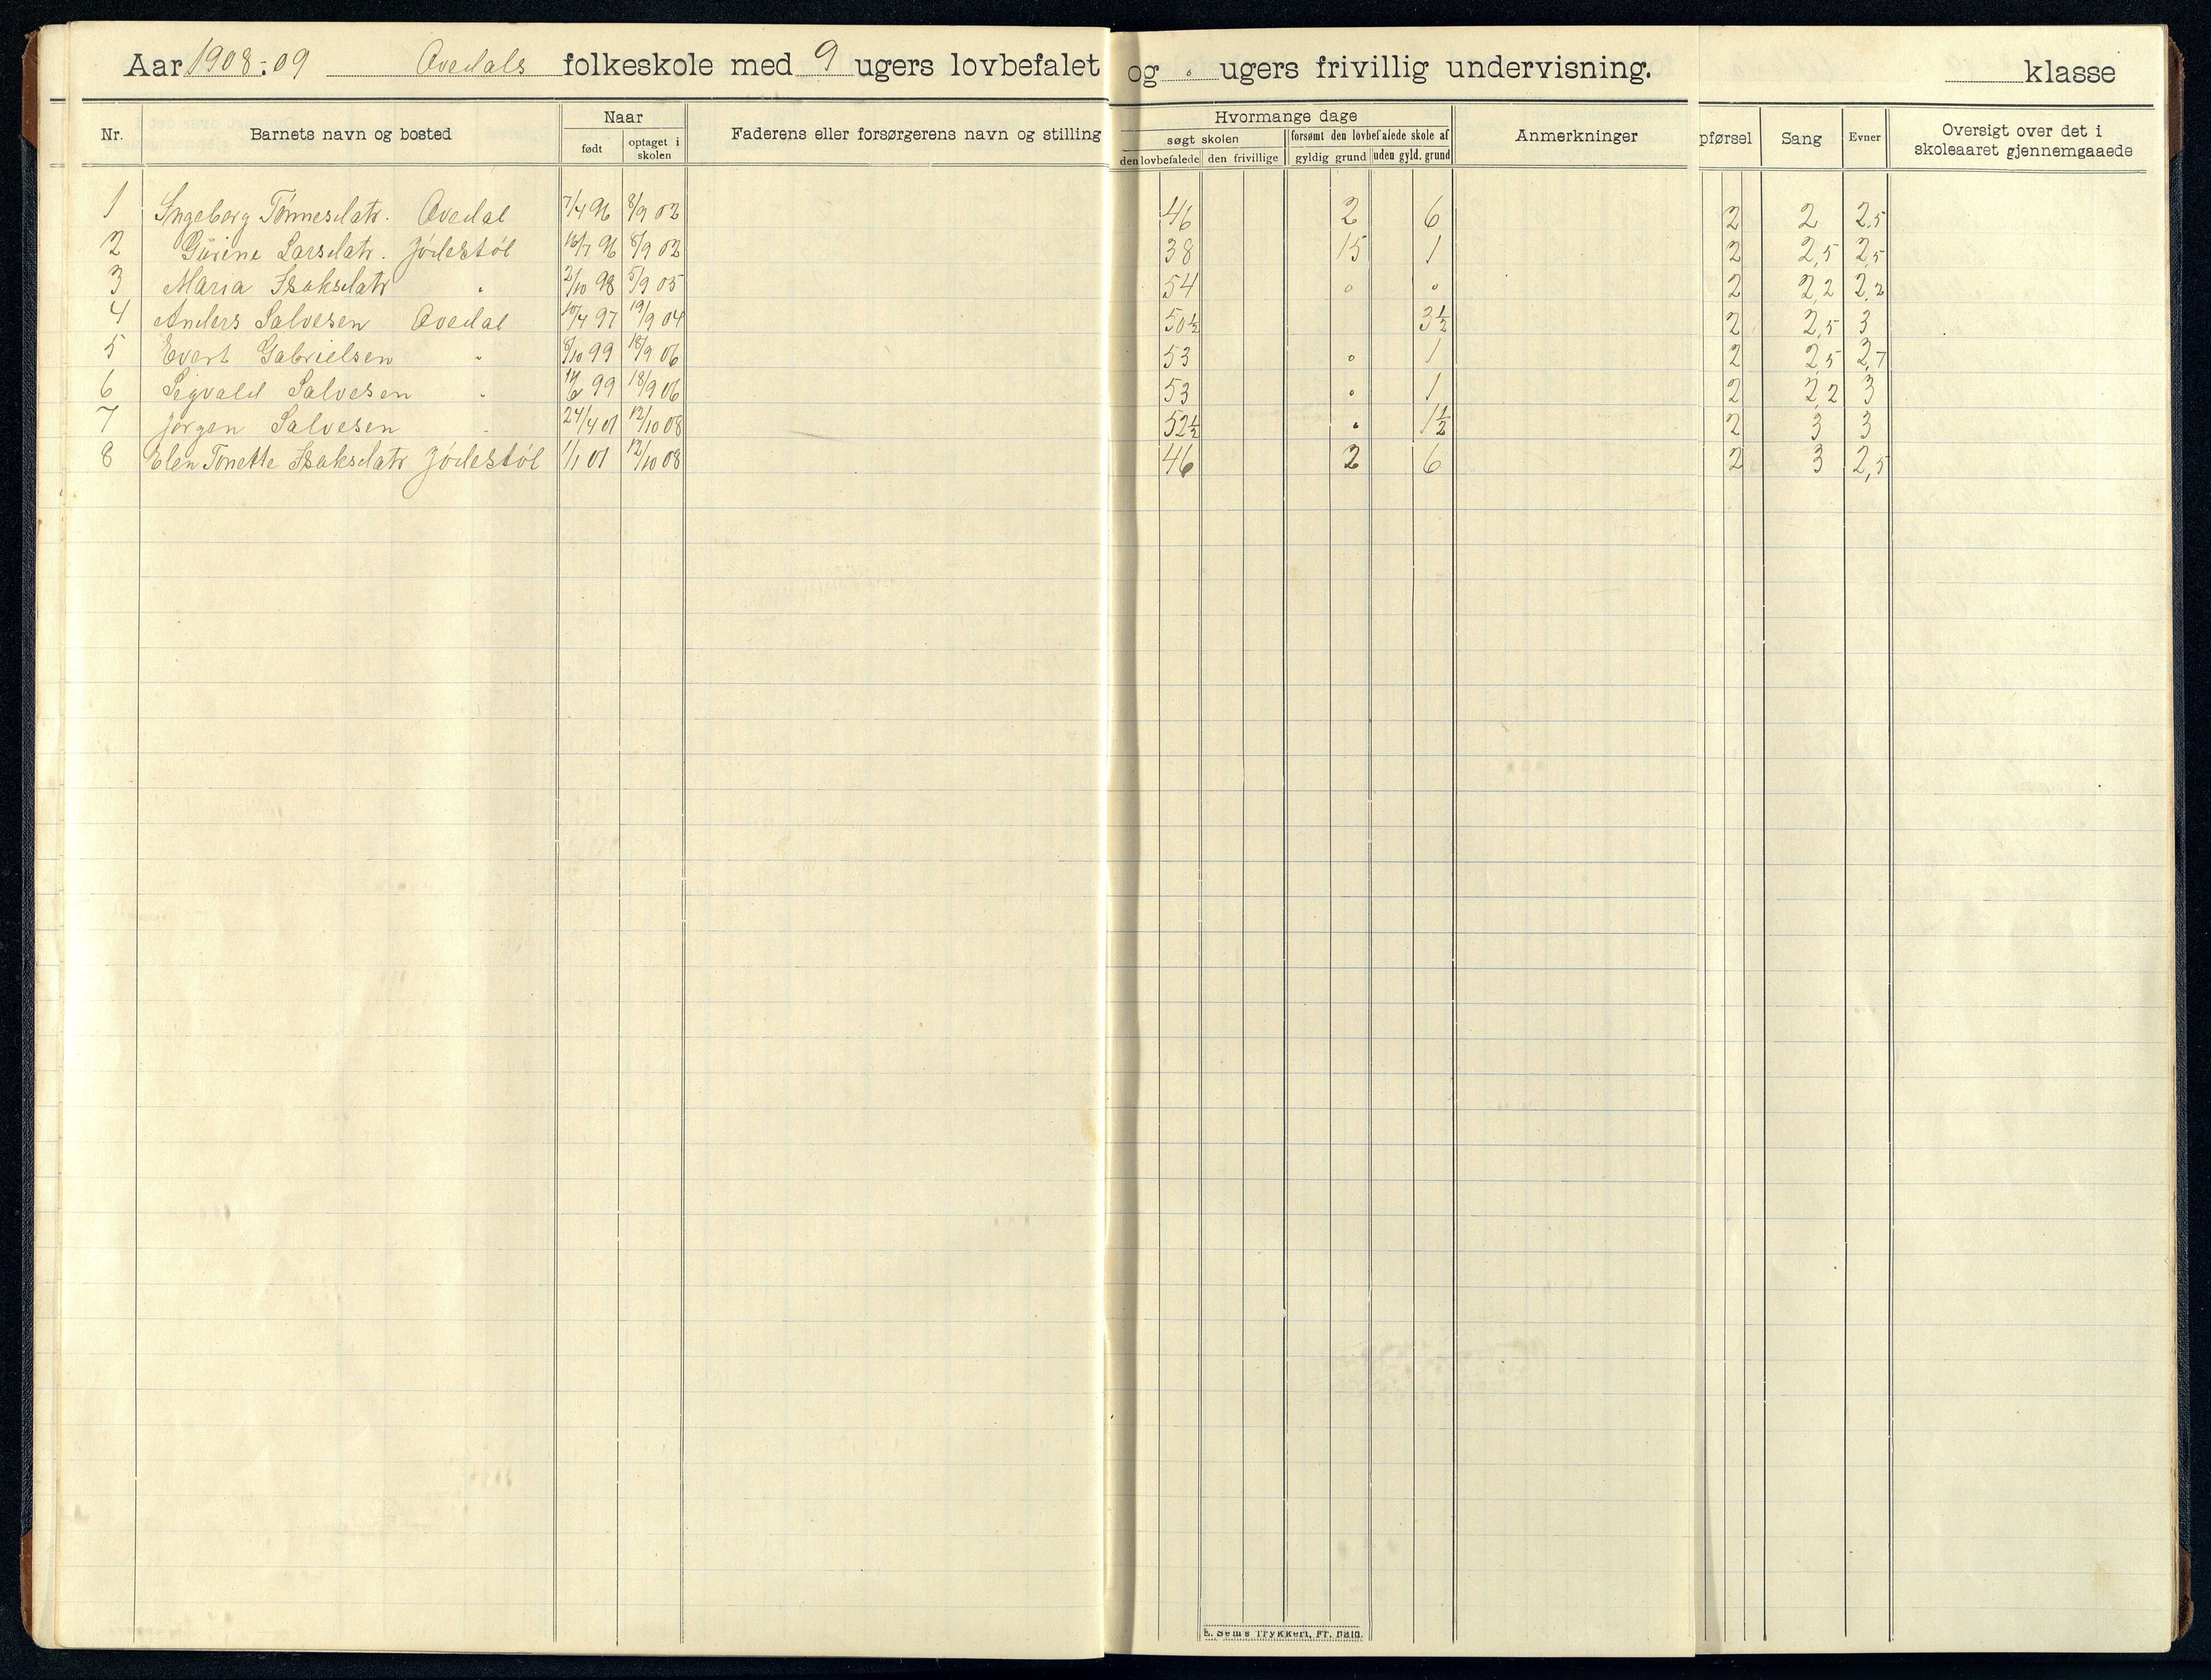 Aar 1908-09 Ovedals folkeskole med 9 ugers lovbefalet og " ugers frivillig undervisning. klasse
Nr. Barnets navn og bosted Naar født optaget i skolen Faderens eller forsørgerens navn og stilling Hvormange dage søgt skolen den lovbefalede den frivillige forsømt den lovbefalede skole af gyldig grund uden gyld. grund Anmerkninger pførsel Sang Evner Oversigt over det i skoleaaret gjennemgaaede
1 Ingeborg Tønnesdatr. Ovedal 7/4 96 8/9 02 46 2 6 2 2 2,5
2 Gurine Larsdatr. Jødestøl 16/7 96 8/9 02 38 15 1 2 2,5 2,5
3 Maria Isaksdatr " 2/10 98 5/9 05 54 " " 2 2,2 2,2
4 Anders Salvesen Ovedal 10/4 97 19/9 04 50½ 3½ 2 2,5 3
5 Evert Gabrielsen " 8/10 99 18/9 06 53 " 1 2 2,5 2,7
6 Sigvald Salvesen " 14/6 99 18/9 06 53 " 1 2 2,2 3
7 Jørgen Salvesen " 24/4 01 12/10 08 52½ " 1½ 2 3 3
8 Elen Tonette Isaksdatr Jødestøl 1/1 01 12/10 08 46 2 6 2 3 2,5
E. Sem's Trykkeri, Fr.hald.